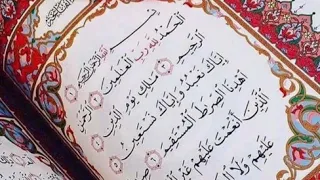 بِسْمِ
الْحَمْدُ لِلَّهِ رَبِّ الْعَالَمِينَ الرَّحْمَنِ
الرَّحِيمِ مَلِكِ يَوْمِ الدِّينِ
إِيَّاكَ نَعْبُدُ وَإِيَّاكَ نَسْتَعِينُ
اهْدِنَا الصِّرَاطَ الْمُسْتَقِيمَ
الَّذِينَ أَنْعَمْتَ عَلَيْهِمْ غَيْرِ
عَلَيْهِمْ وَلَا